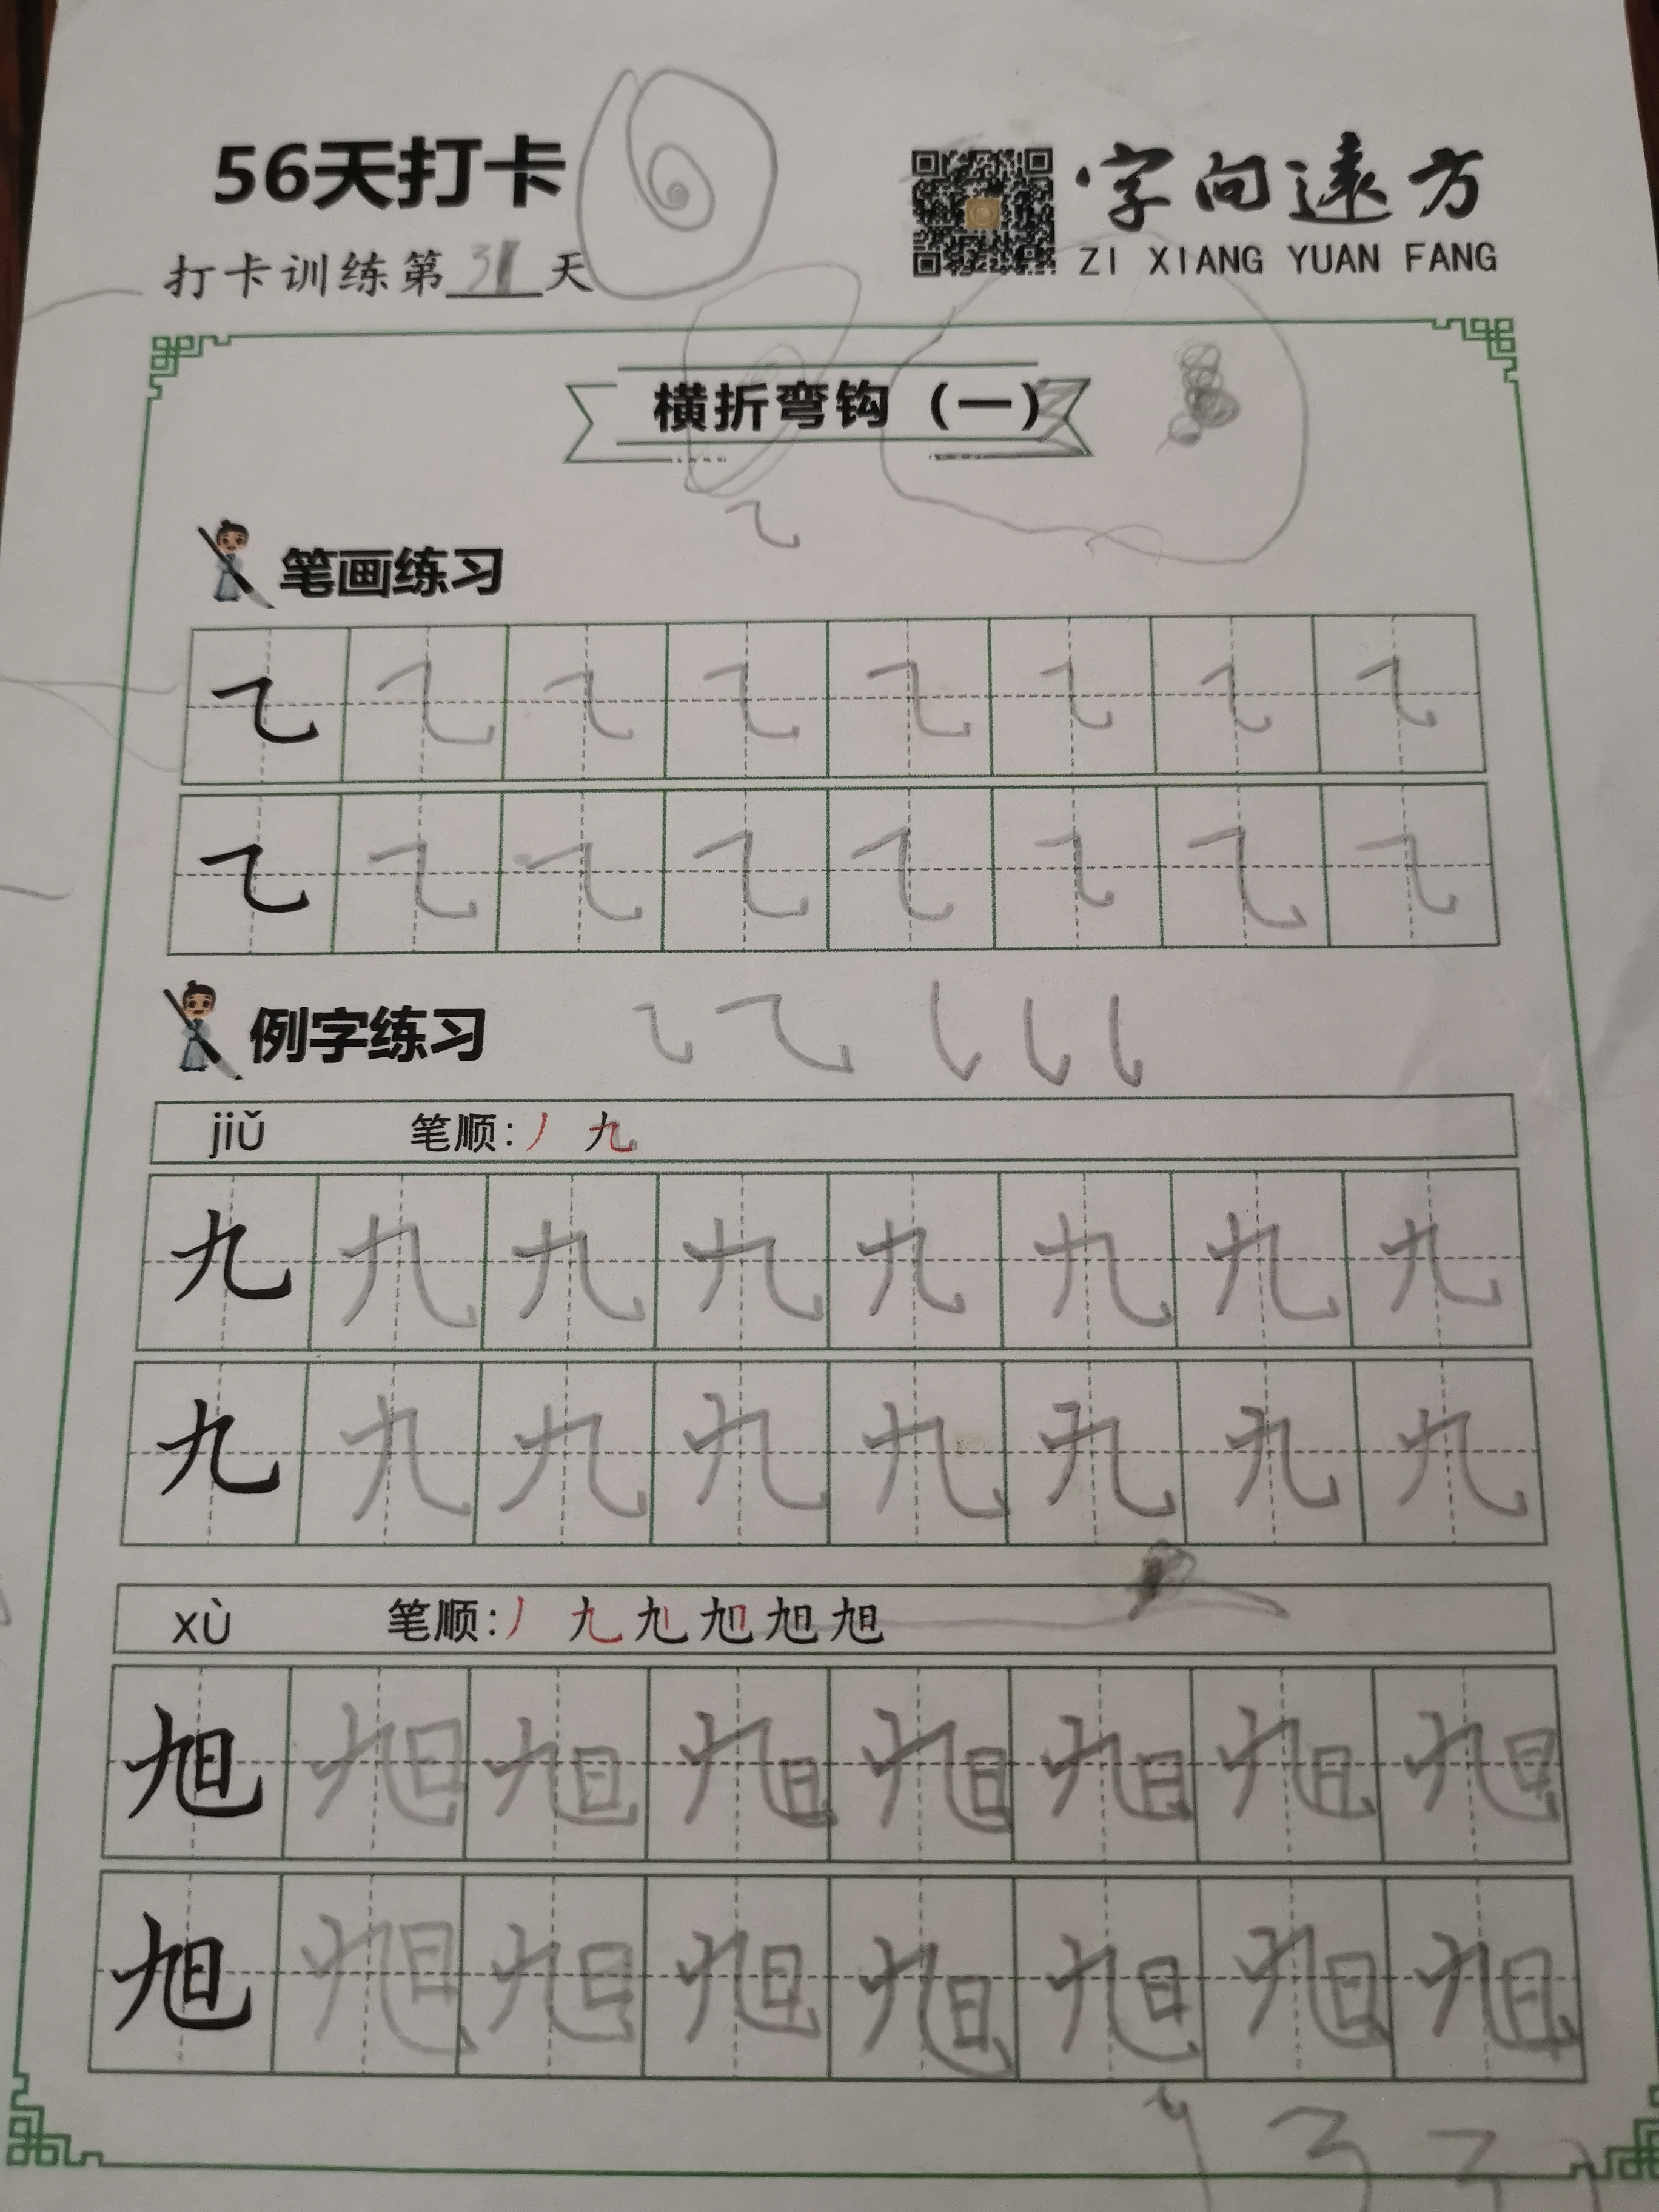 56天打卡
字向遠方
打卡训练第31天
ZI XIANG YUAN FANG
横折弯钩（一）
笔画练习
㇈ ㇈ ㇈ ㇈ ㇈ ㇈ ㇈ ㇈
㇈ ㇈ ㇈ ㇈ ㇈ ㇈ ㇈ ㇈
例字练习
jiǔ 笔顺：丿 九
九 九 九 九 九 九 九 九
九 九 九 九 九 九 九 九
xù 笔顺：丿 九 旭 旭 旭 旭
旭 旭 旭 旭 旭 旭 旭 旭
旭 旭 旭 旭 旭 旭 旭 旭